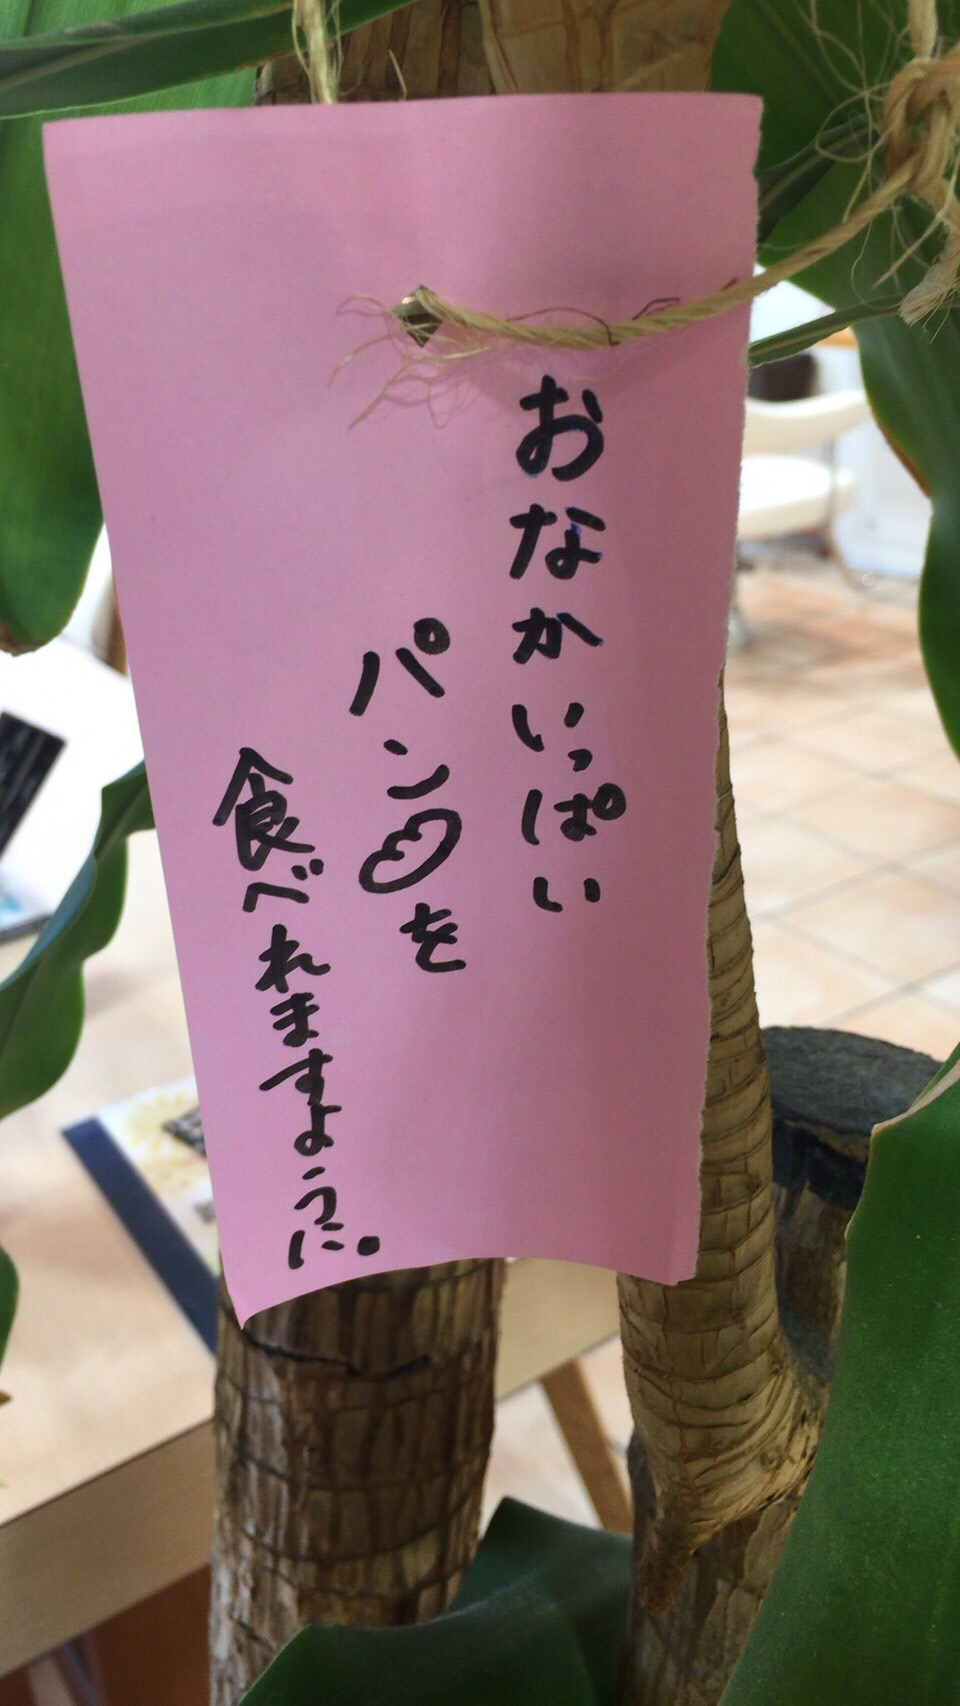 おなかいっぱい
パンを
食べれますように。